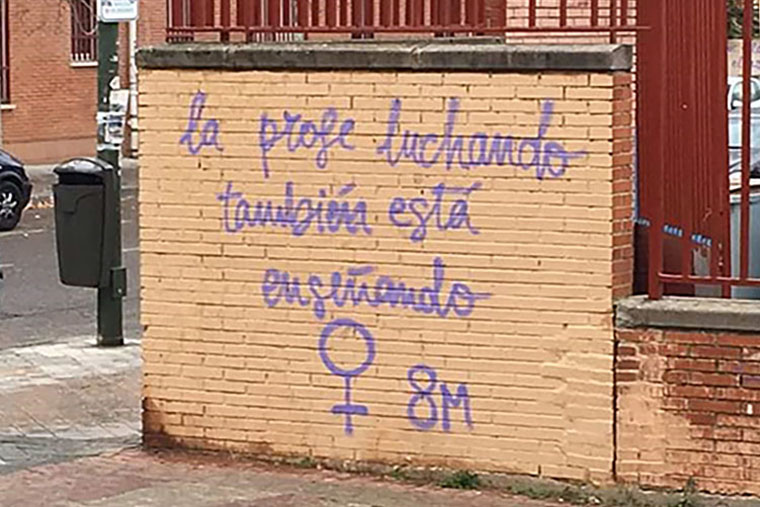 la profe luchando
también está
enseñando
8M